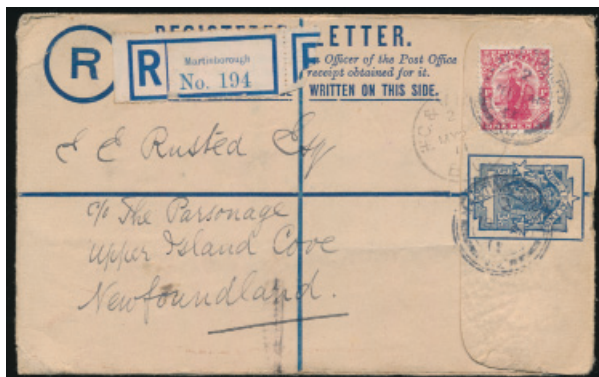 REGISTERED LETTER.
R
R
Martinborough
No. 194
Officer of the Post Office
receipt obtained for it.
WRITTEN ON THIS SIDE.
ONE PENNY
E Rusted Esq
c/o The Parsonage
Upper Island Cove
Newfoundland.